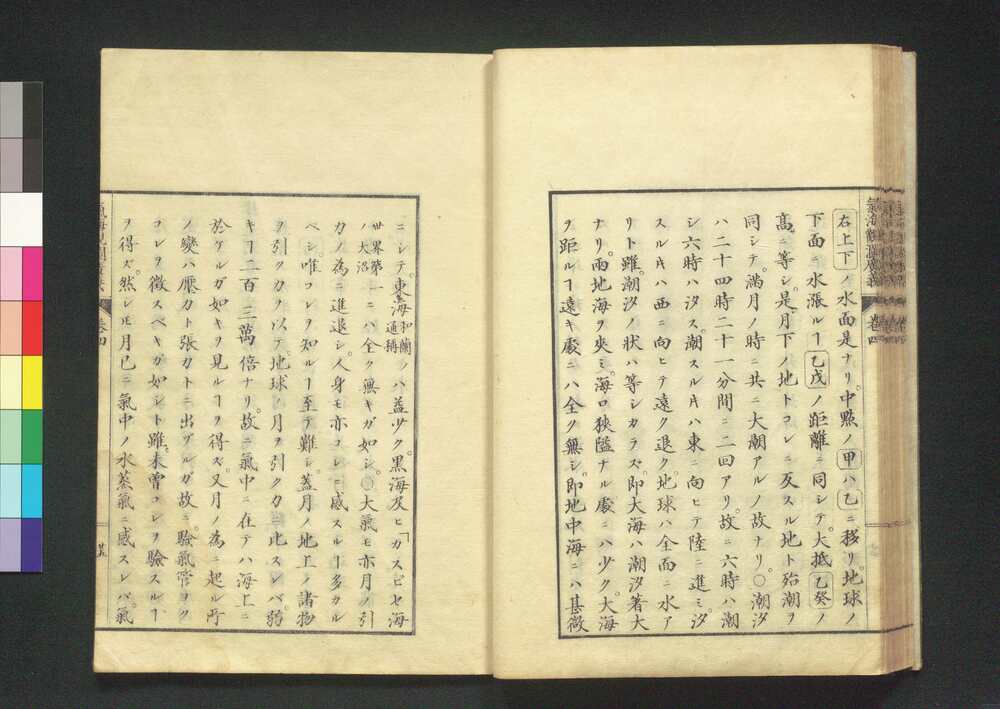 氣海觀瀾廣義 卷四
右上下ノ水面是ナリ。中點ノ甲ハ乙ニ移リ。地球ノ
下面ニ水漲ルヿ乙戊ノ距離ニ同シテ。大抵乙癸ノ
高ニ等シ。是月下ノ地トコレニ反スル地ト殆潮ヲ
同シテ。満月ノ時ニ共ニ大潮アルノ故ナリ。〇潮汐
ハ二十四時二十一分間ニ二回アリ。故ニ六時ハ潮
シ六時ハ汐ス。潮スル𪜈ハ東ニ向ヒテ陸ニ進ミ。汐
スル𪜈ハ西ニ向ヒテ遠ク退ク。地球ハ全面ニ水ア
リト雖。潮汐ノ狀ハ等シカラズ。即大海ハ潮汐著大
ナリ。兩地海ヲ夾ミ。海口狹隘ナル處ニハ少ク。大海
ヲ距ルヿ遠キ處ニハ全ク無シ。即地中海ニハ甚微
ニシテ。東海和蘭ノ通稱ノハ益少ク。黑海及ヒ「カスピセ海
世界第一ノ大沼ニハ全ク無キガ如シ。〇大氣モ亦月ノ引
力ノ為ニ進退シ。人身モ亦コレニ感スルヿ多カル
ベシ。唯コレヲ知ルヿ至テ難シ。蓋月ノ地上ノ諸物
ヲ引ク力ヲ以テ。地球ノ月ヲ引ク力ニ比スレバ。弱
キヿ二百三萬倍ナリ。故ニ氣中ニ在テハ海上ニ
於ケルガ如キヲ見ルヿヲ得ズ。又月ノ為ニ起ル所
ノ變ハ壓力ト張力トニ出ヅルガ故ニ。驗氣管ヲク
コレヲ徴スベキガ如シト雖。未曾コレヲ驗スルヿ
ヲ得ズ。然レ𪜈月已ニ氣中ノ水蒸氣ニ感スレバ。氣
卷四
廿五